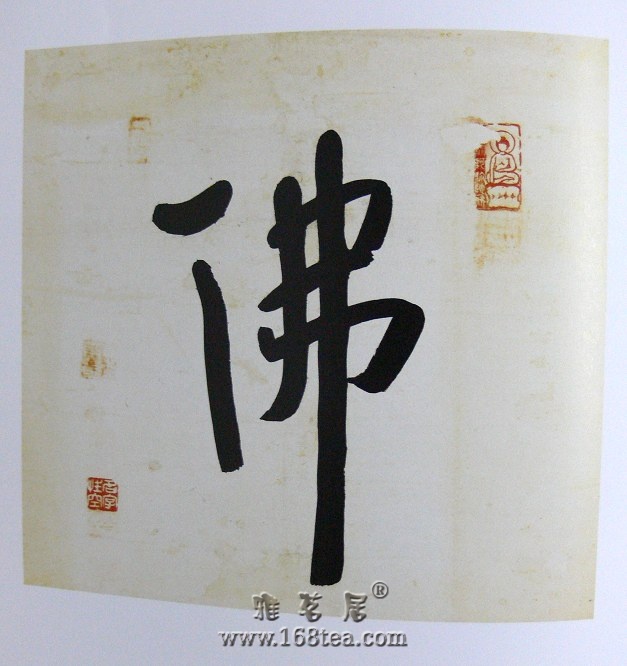 佛
雅茗居®
www.168tea.com